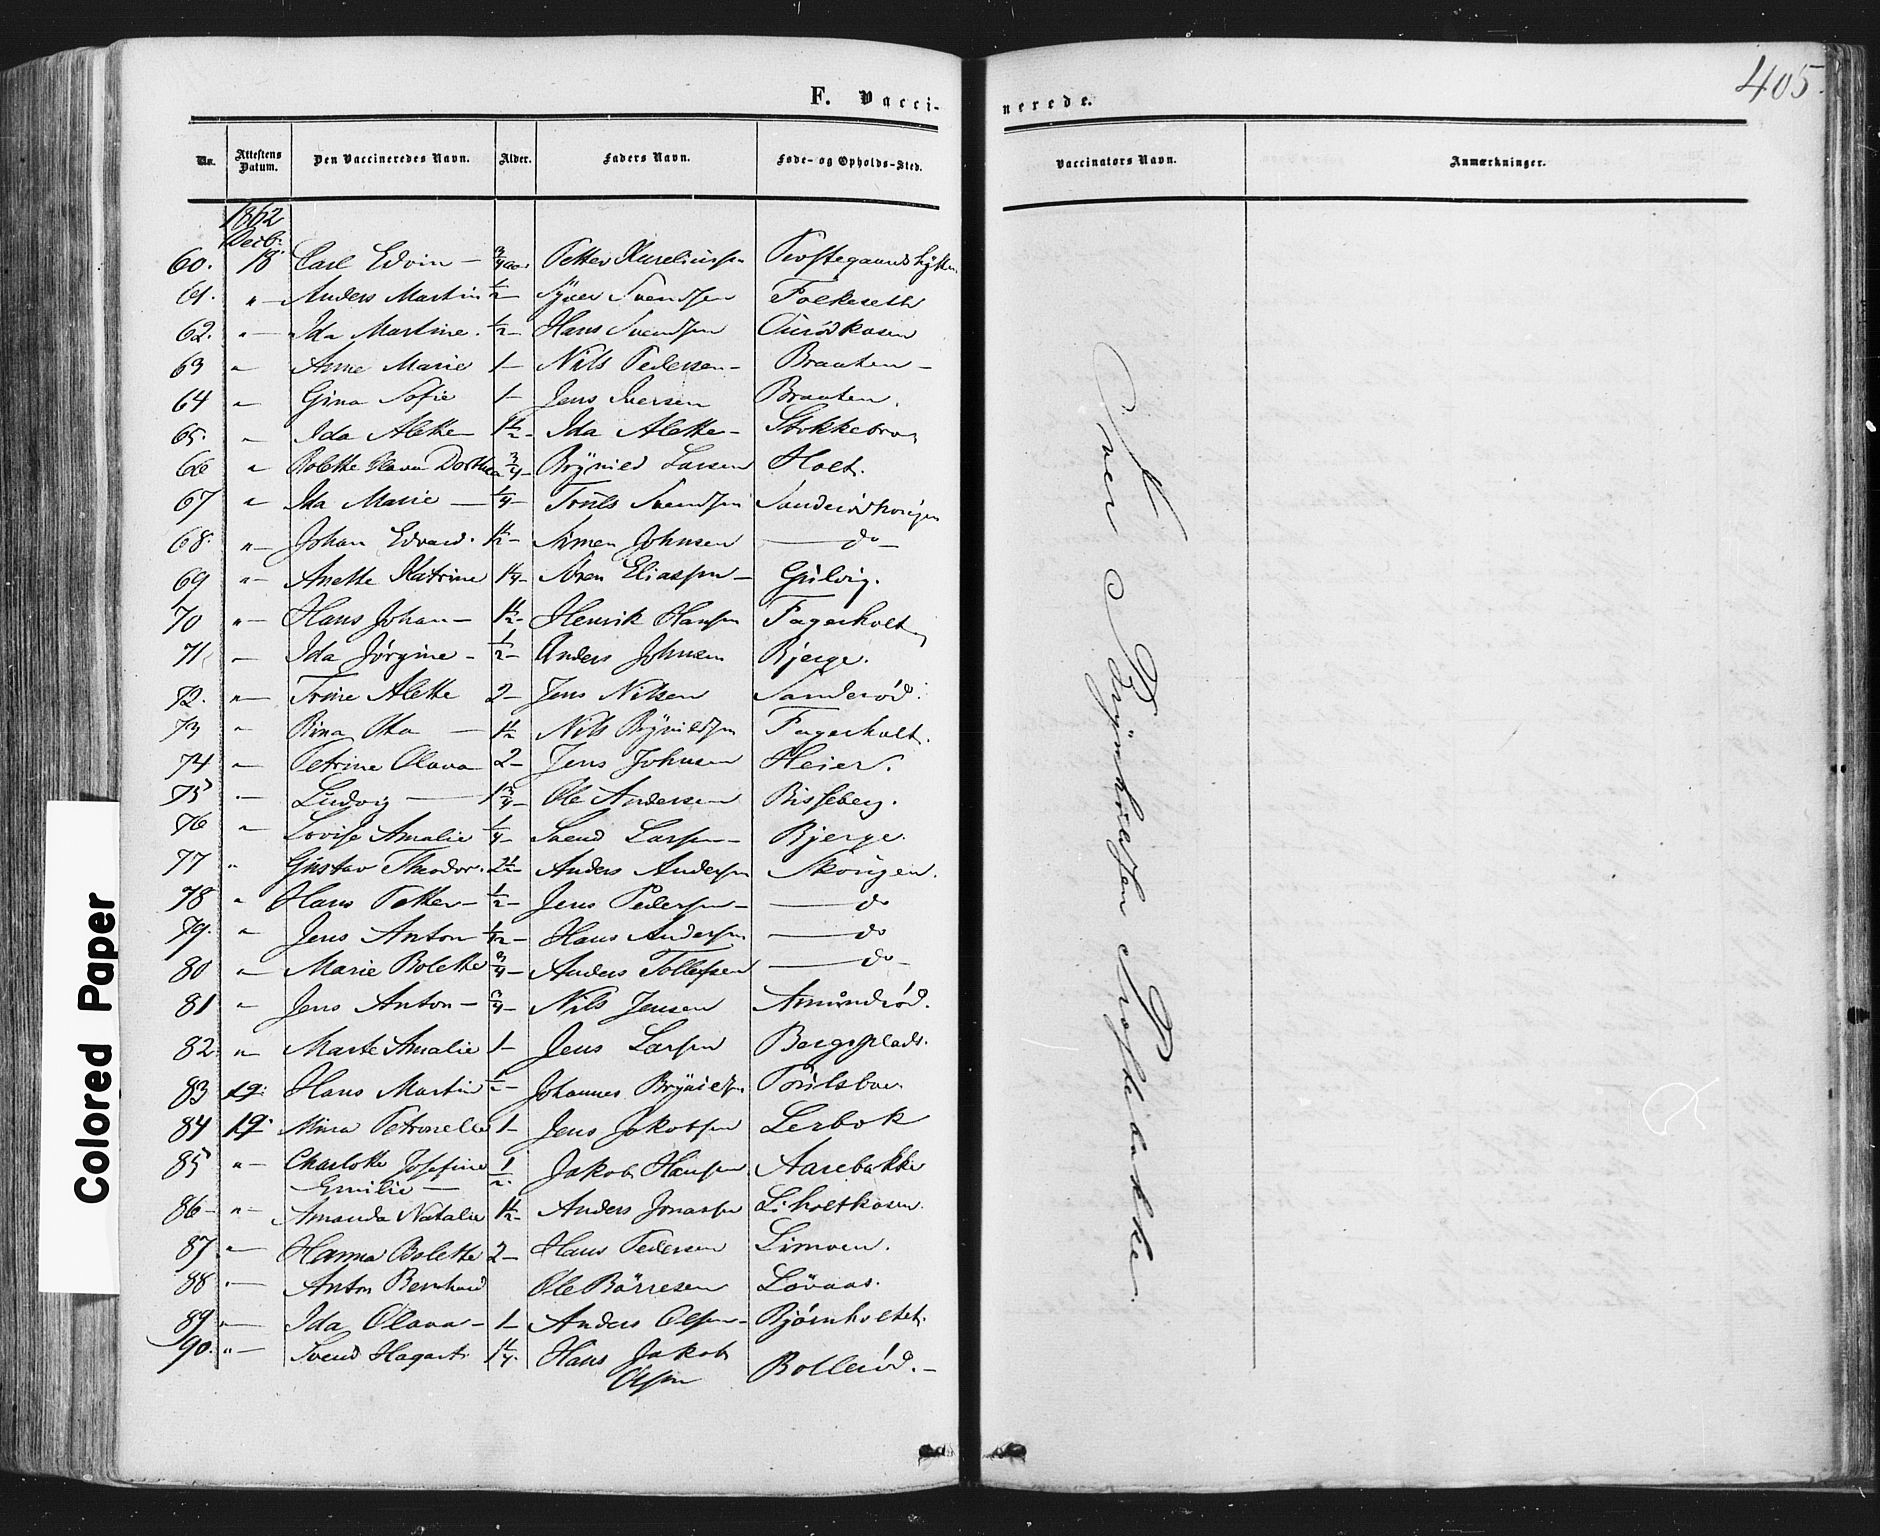 405.
F. Vaccinerede.
No. Attestens Datum. Den Vaccineredes Navn. Alder. Faders Navn. Føde- og Opholds-Sted. Vaccinators Navn. Anmærkninger.
1862
Decb:
60. 18 Carl Edvin — 3/4 aar Petter Aureliussen
61. " Anders Martin 1/2 — Syver Svendsen Folkeseth
62. " Ida Martine. 1/2 — Hans Svendsen Aurødkasen
63 " Anne Marie 1 — Nils Pedersen — Braaten —
64 " Gina Sofie 1 — Jens Iversen Braaten.
65. " Ida Alette 1 1/2 — Ida Alette — Stokkebroe
66 " Bolette Olava Dorthea 3/4 — Brynild Larsen Holt.
67 " Ida Marie — 1/4 — Truls Svendsen
68. " Johan Edvard. 1 1/2 — Simen Johnsen — do —
69 " Anette Katrine 1 1/4 — Søren Eliassen — Gulvig.
70 " Hans Johan — 1 1/2 — Henrik Hansen Fagerholt
71 " Ida Jørgine — 1/2 — Anders Johnsen Bjerge.
72. " Trine Alette 2 — Jens Nilsen Sanderød.
73 " Rina Ida — 1 1/2 Nils Brynildsen Fagerholt.
74 " Petrine Olava 2 — Jens Johnsen Heier.
75 " Ludvig — 1 3/4 — Ole Andersen Bisseberg.
76 " Lovise Amalie 1/4 — Svend Larsen — Bjerge.
77 " Gustav Theodor. 2 1/2 — Anders Andersen Skougen.
78 " Hans Petter — 1/2 — Jens Pedersen — — do
79. " Jens Anton Hans Andersen — do
80 " Marie Bolette 3/4 — Anders Tollefsen — do —
81 " Jens Anton — 3/4 — Nils Jensen Amundrød.
82. " Marte Amalie 1 — Jens Larsen Bergsplads.
83 19. Hans Martin 1/2 — Johannes Brynildsen Trulsboe
84 19. Mina Petronelle 1 — Jens Jakobsen Lerbok
85 " Charlotte Josefine 1/2. Jakob Hansen Aarebakke
Emilie —
86 — " Amanda Natalie 1 1/2 — Anders Jonassen Liholtkasen.
87. " Hanna Bolette 2 — Hans Pedersen Limoen.
88 " Anton Bernhard Ole Börresen Lövaas.
89 " Ida Olava — 1 — Anders Olsen — Bjørnholtet.
90. " Svend Hagart 1 1/4. Hans Jakob Bollerød. —
Olsen
Iver Brynhildsen Profsbakke.
Colored Paper